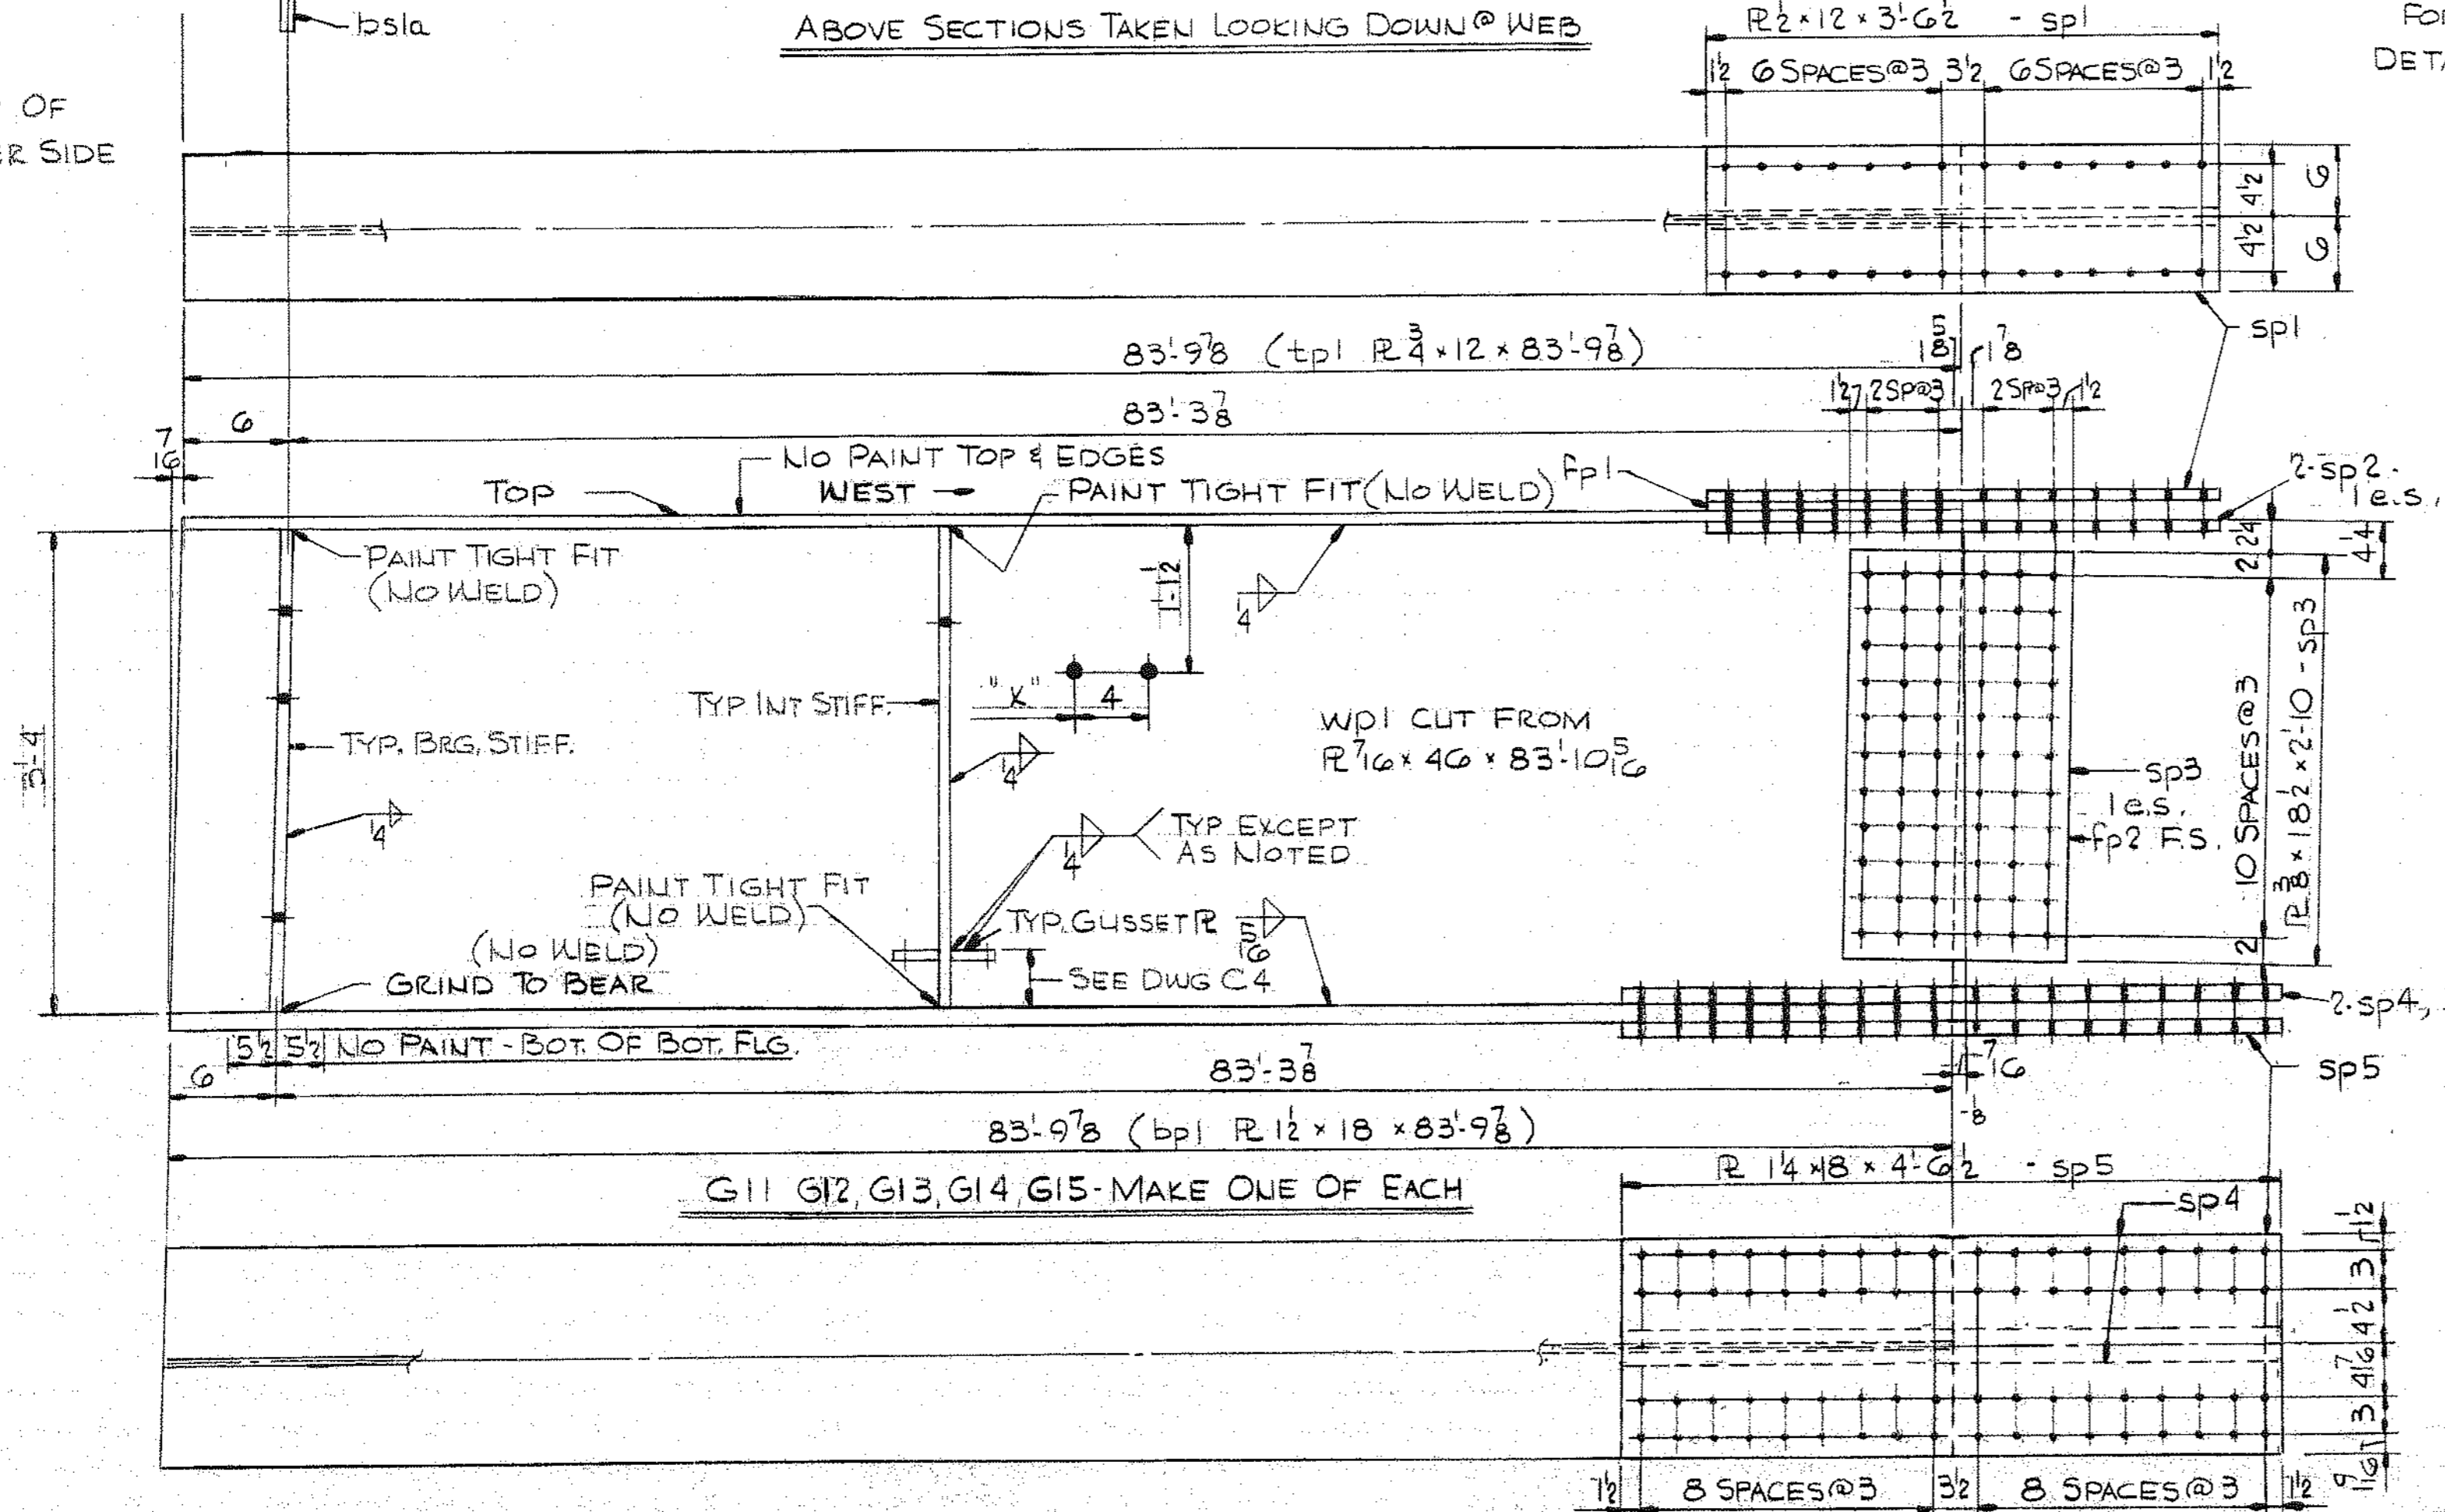 bs1a
ABOVE SECTIONS TAKEN LOOKING DOWN @ WEB
PL 1/2 × 12 × 3'-6 1/2 - sp1
DETA
1 1/2 6 SPACES@3 3 1/2 6 SPACES@3 1 1/2
OF
SIDE
4 1/2 6
4 1/2 6
sp1
83'-9 7/8 (tp1 PL 3/4 × 12 × 83'-9 7/8)
1 5/8 1 7/8
1 1/2 2 SP@3 2 SP@3 1 1/2
6 83'-3 7/8
7/16
NO PAINT TOP & EDGES
TOP WEST PAINT TIGHT FIT (NO WELD) fp1
2-sp2
1 e.s.
PAINT TIGHT FIT
(NO WELD)
1'-1 1/2
1/4
2 2 1/4
4 1/4
3'-4
TYP INT STIFF.
"X" 4
TYP. BRG. STIFF.
1/4
1/4
wp1 CUT FROM
PL 7/16 × 46 × 83'-10 5/16
sp3
1 e.s.
fp2 F.S.
10 SPACES@3
2
PL 3/8 × 18 1/2 × 2'-10 - sp3
1/4 TYP EXCEPT
AS NOTED
PAINT TIGHT FIT
(NO WELD)
TYP. GUSSET PL 5/16
(NO WELD)
GRIND TO BEAR
SEE DWG C4
2-sp4,
sp5
5 1/2 5 1/2 NO PAINT - BOT. OF BOT. FLG.
6 83'-3 7/8
7/16
1/8
83'-9 7/8 (bp1 PL 1 1/2 × 18 × 83'-9 7/8)
G11 G12, G13, G14, G15 - MAKE ONE OF EACH
PL 1 1/4 × 18 × 4'-6 1/2 - sp5
sp4
1 1/2
3
4 1/2
4 7/16
3
1 9/16
1 1/2 8 SPACES@3 3 1/2 8 SPACES@3 1 1/2